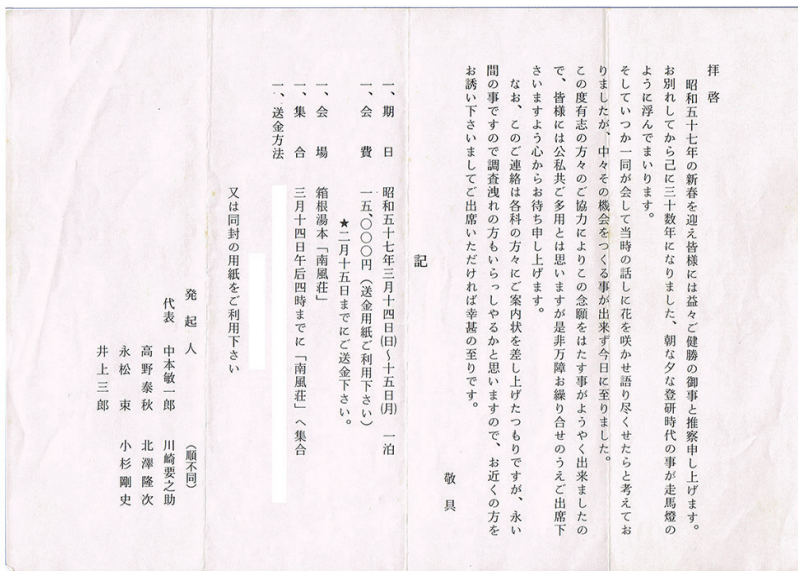 拝啓
昭和五十七年の新春を迎え皆様には益々ご健勝の御事と推察申し上げます。
お別れしてから己に三十数年になりました、朝な夕な登研時代の事が走馬燈の
ように浮んでまいります。
そしていつか一同が会して当時の話しに花を咲かせ語り尽くせたらと考えてお
りましたが、中々その機会をつくる事が出来ず今日に至りました。
この度有志の方々のご協力によりこの念願をはたす事がようやく出来ましたの
で、皆様には公私共ご多用とは思いますが是非万障お繰り合せのうえご出席下
さいますよう心からお待ち申し上げます。
なお、このご連絡は各科の方々にご案内状を差し上げたつもりですが、永い
間の事ですので調査洩れの方もいらっしゃるかと思いますので、お近くの方を
お誘い下さいましてご出席いただければ幸甚の至りです。
敬具
記
一、期日 昭和五十七年三月十四日(日)〜十五日(月) 一泊
一、会費 一五、〇〇〇円(送金用紙ご利用下さい)
★二月十五日までにご送金下さい。
一、会場 箱根湯本「南風荘」
一、集合 三月十四日午后四時までに「南風荘」へ集合
一、送金方法
又は同封の用紙をご利用下さい
発起人 (順不同)
代表 中本敏一郎 川崎要之助
高野泰秋 北澤隆次
永松東 小杉剛史
井上三郎